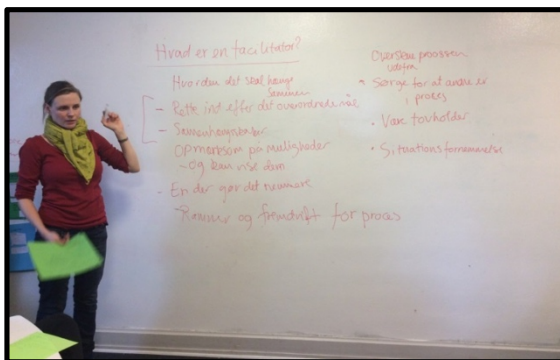 Hvad er en facilitator?
Hvordan det skal hænge
sammen
- Rette ind efter det overordnede mål
- Sammenhængskaber
Opmærksom på muligheder
- og kan vise dem
- En der gør det nemmere
- Rammer og fremdrift for proces
Overskue processen
udefra
Sørge for at andre er
i proces
• Være tovholder
• Situationsfornemmelse